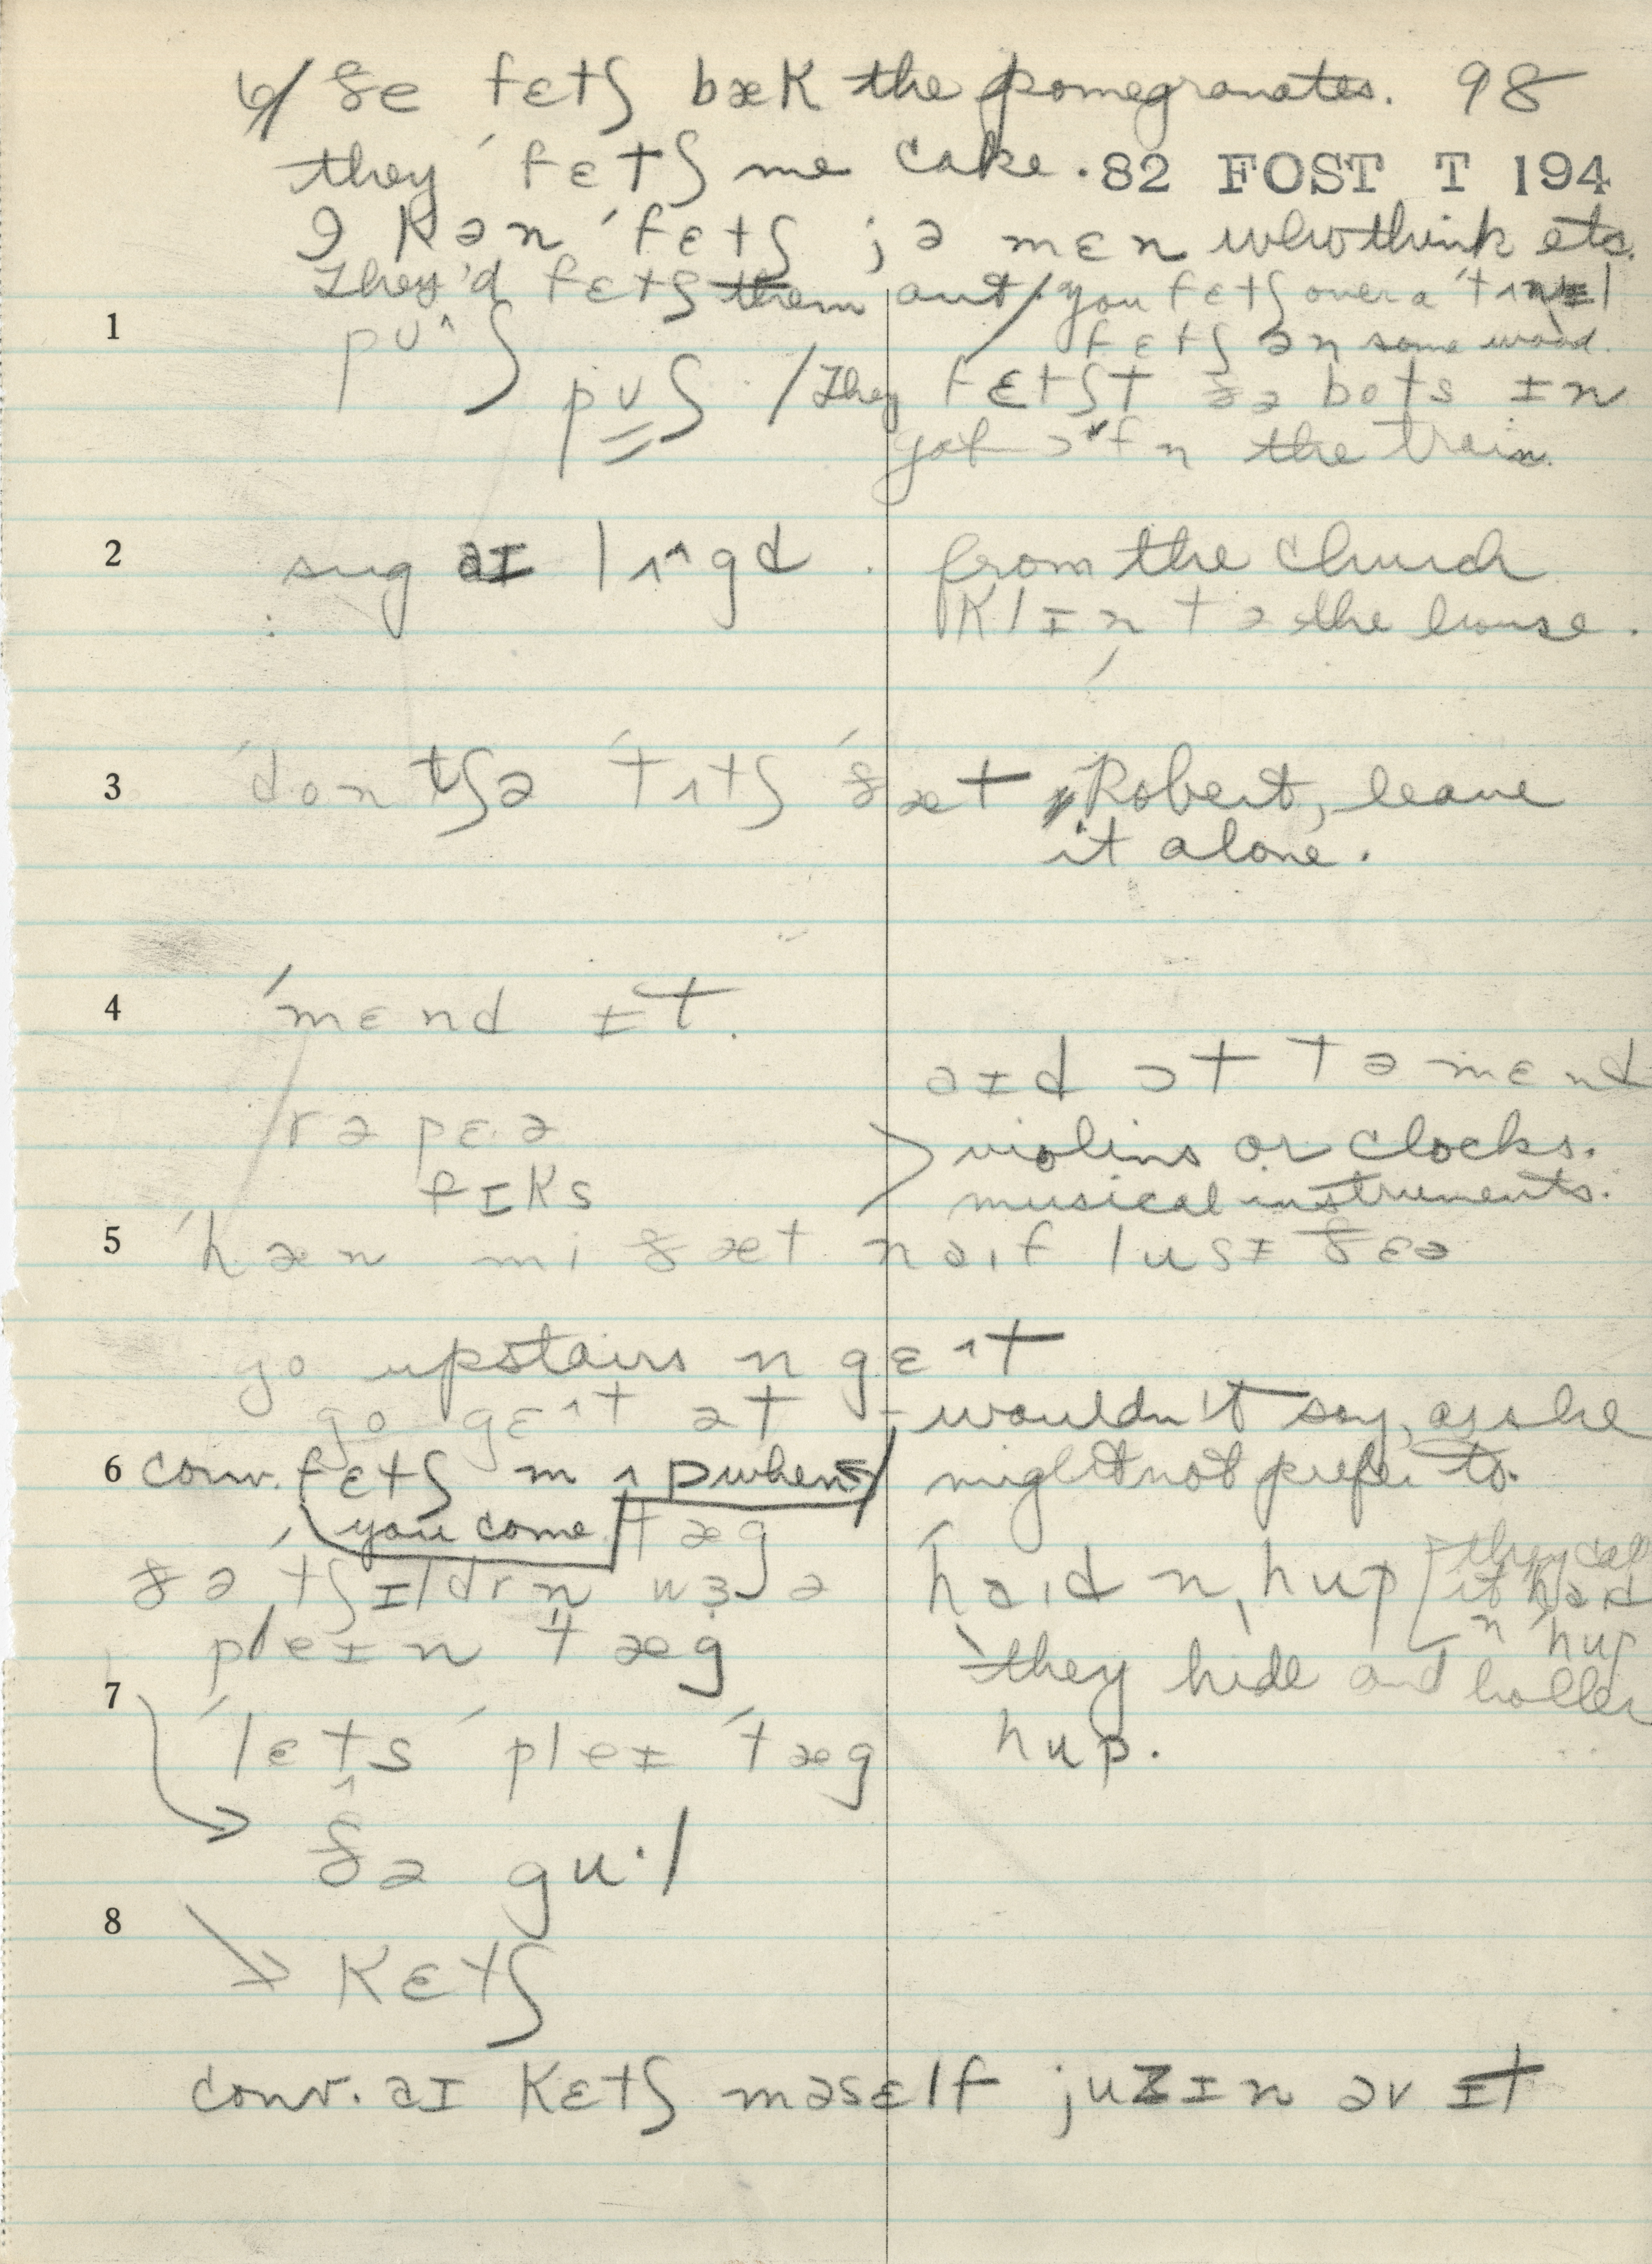 6/ ðe fɛtʃ bæk the pomegranates. 98
they ˊfɛtʃ me cake. 82 FOST T 194
I kən ˊfɛtʃ jə mɛn who think etc.
They'd fɛtʃ them out / you fɛtʃ over a
fɛtʃ ən some wood.
1 pʊ^ʃ
pʊʃ / They fɛtʃt ðə bots ɪn
got ɔfn the train.
2 aɪ lʌ^gd. from the church
klɪn tə the house.
3 ˊdon tʃə ˊtʌtʃ ˊðæt, Robert, leave
it alone.
4 ˊmɛnd ɪt.
aɪd ɔt tə mɛnd
rəpɛə violins or clocks.
fɪks musical instruments.
5 ˊhæn mi ðæt naɪf lusɪ ðɛə
go upstairs n gɛ^t
go gɛ^t ət - wouldn't say, as she
6 conv. fɛtʃ m ʌp when / might not prefer to.
you come tæg
ðə ˊtʃɪldrn wɜ ə haɪd n hup [they call
pleɪn tæg it haɪd
n ˊhup
they hide and holler
7 ˊlɛts ˊpleɪ ˊtæg hup.
ðə gu·l
8 kɛtʃ
conv. aɪ kɛtʃ məsɛlf juzɪn əv ɪt